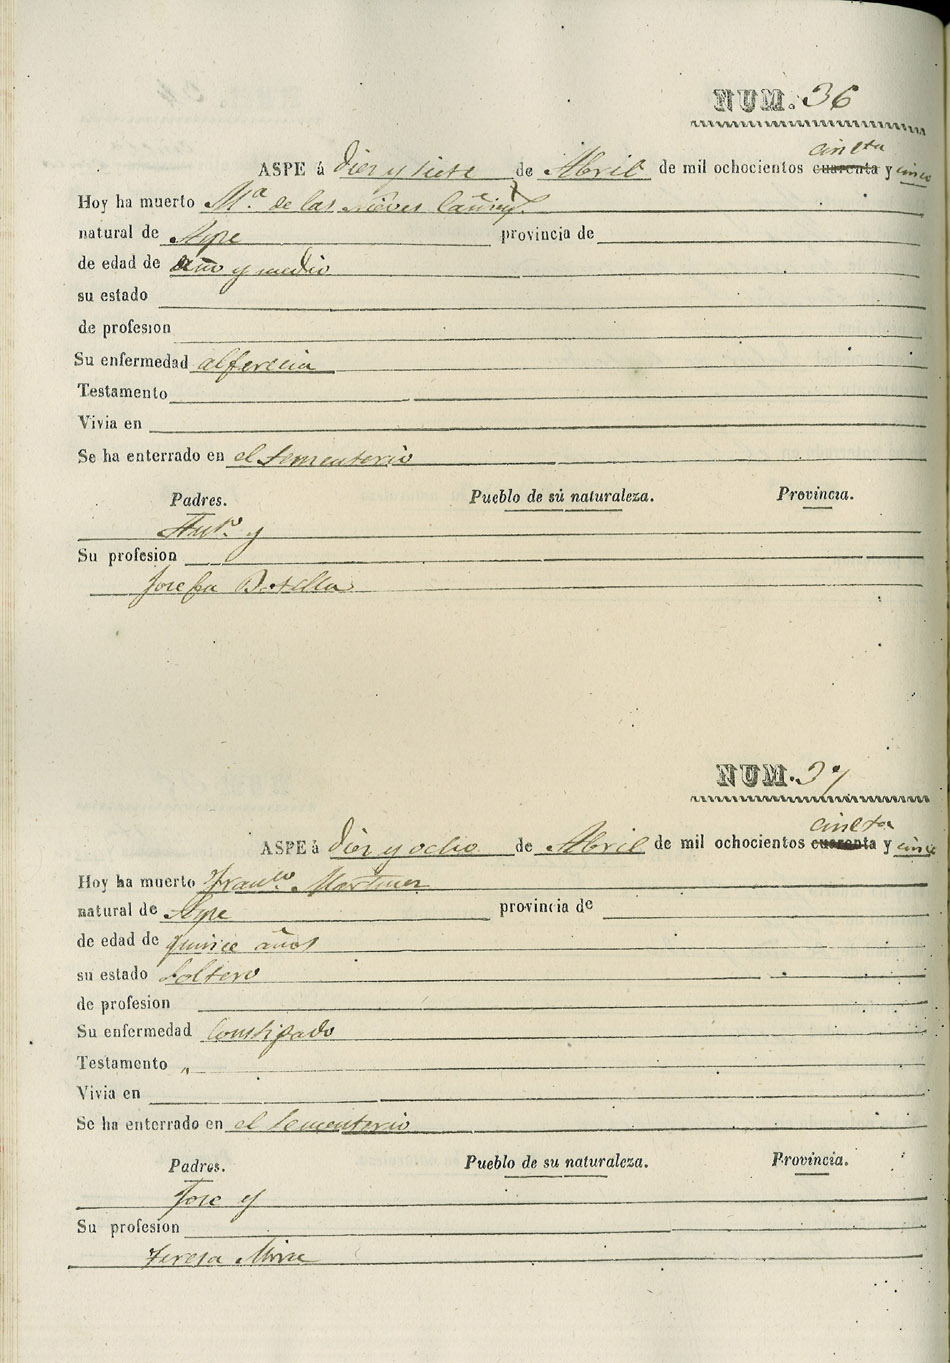 NUM. 36
cincta
ASPE á diez y siete de Abril de mil ochocientos cuarenta y cinco
Hoy ha muerto M.ª de las Nieves
natural de Aspe provincia de
de edad de año y medio
su estado
de profesion
Su enfermedad alferecia
Testamento
Vivia en
Se ha enterrado en el Sementerio
Padres. Pueblo de su naturaleza. Provincia.
Ant.º y
Su profesion
Josefa Botella
NUM. 37
cincta
ASPE á diez y ocho de Abril de mil ochocientos cuarenta y cinco
Hoy ha muerto Fran.co Martinez
natural de Aspe provincia de
de edad de quince años
su estado Soltero
de profesion
Su enfermedad Constipado
Testamento "
Vivia en
Se ha enterrado en el Sementerio
Padres. Pueblo de su naturaleza. Provincia.
Jose y
Su profesion
Teresa